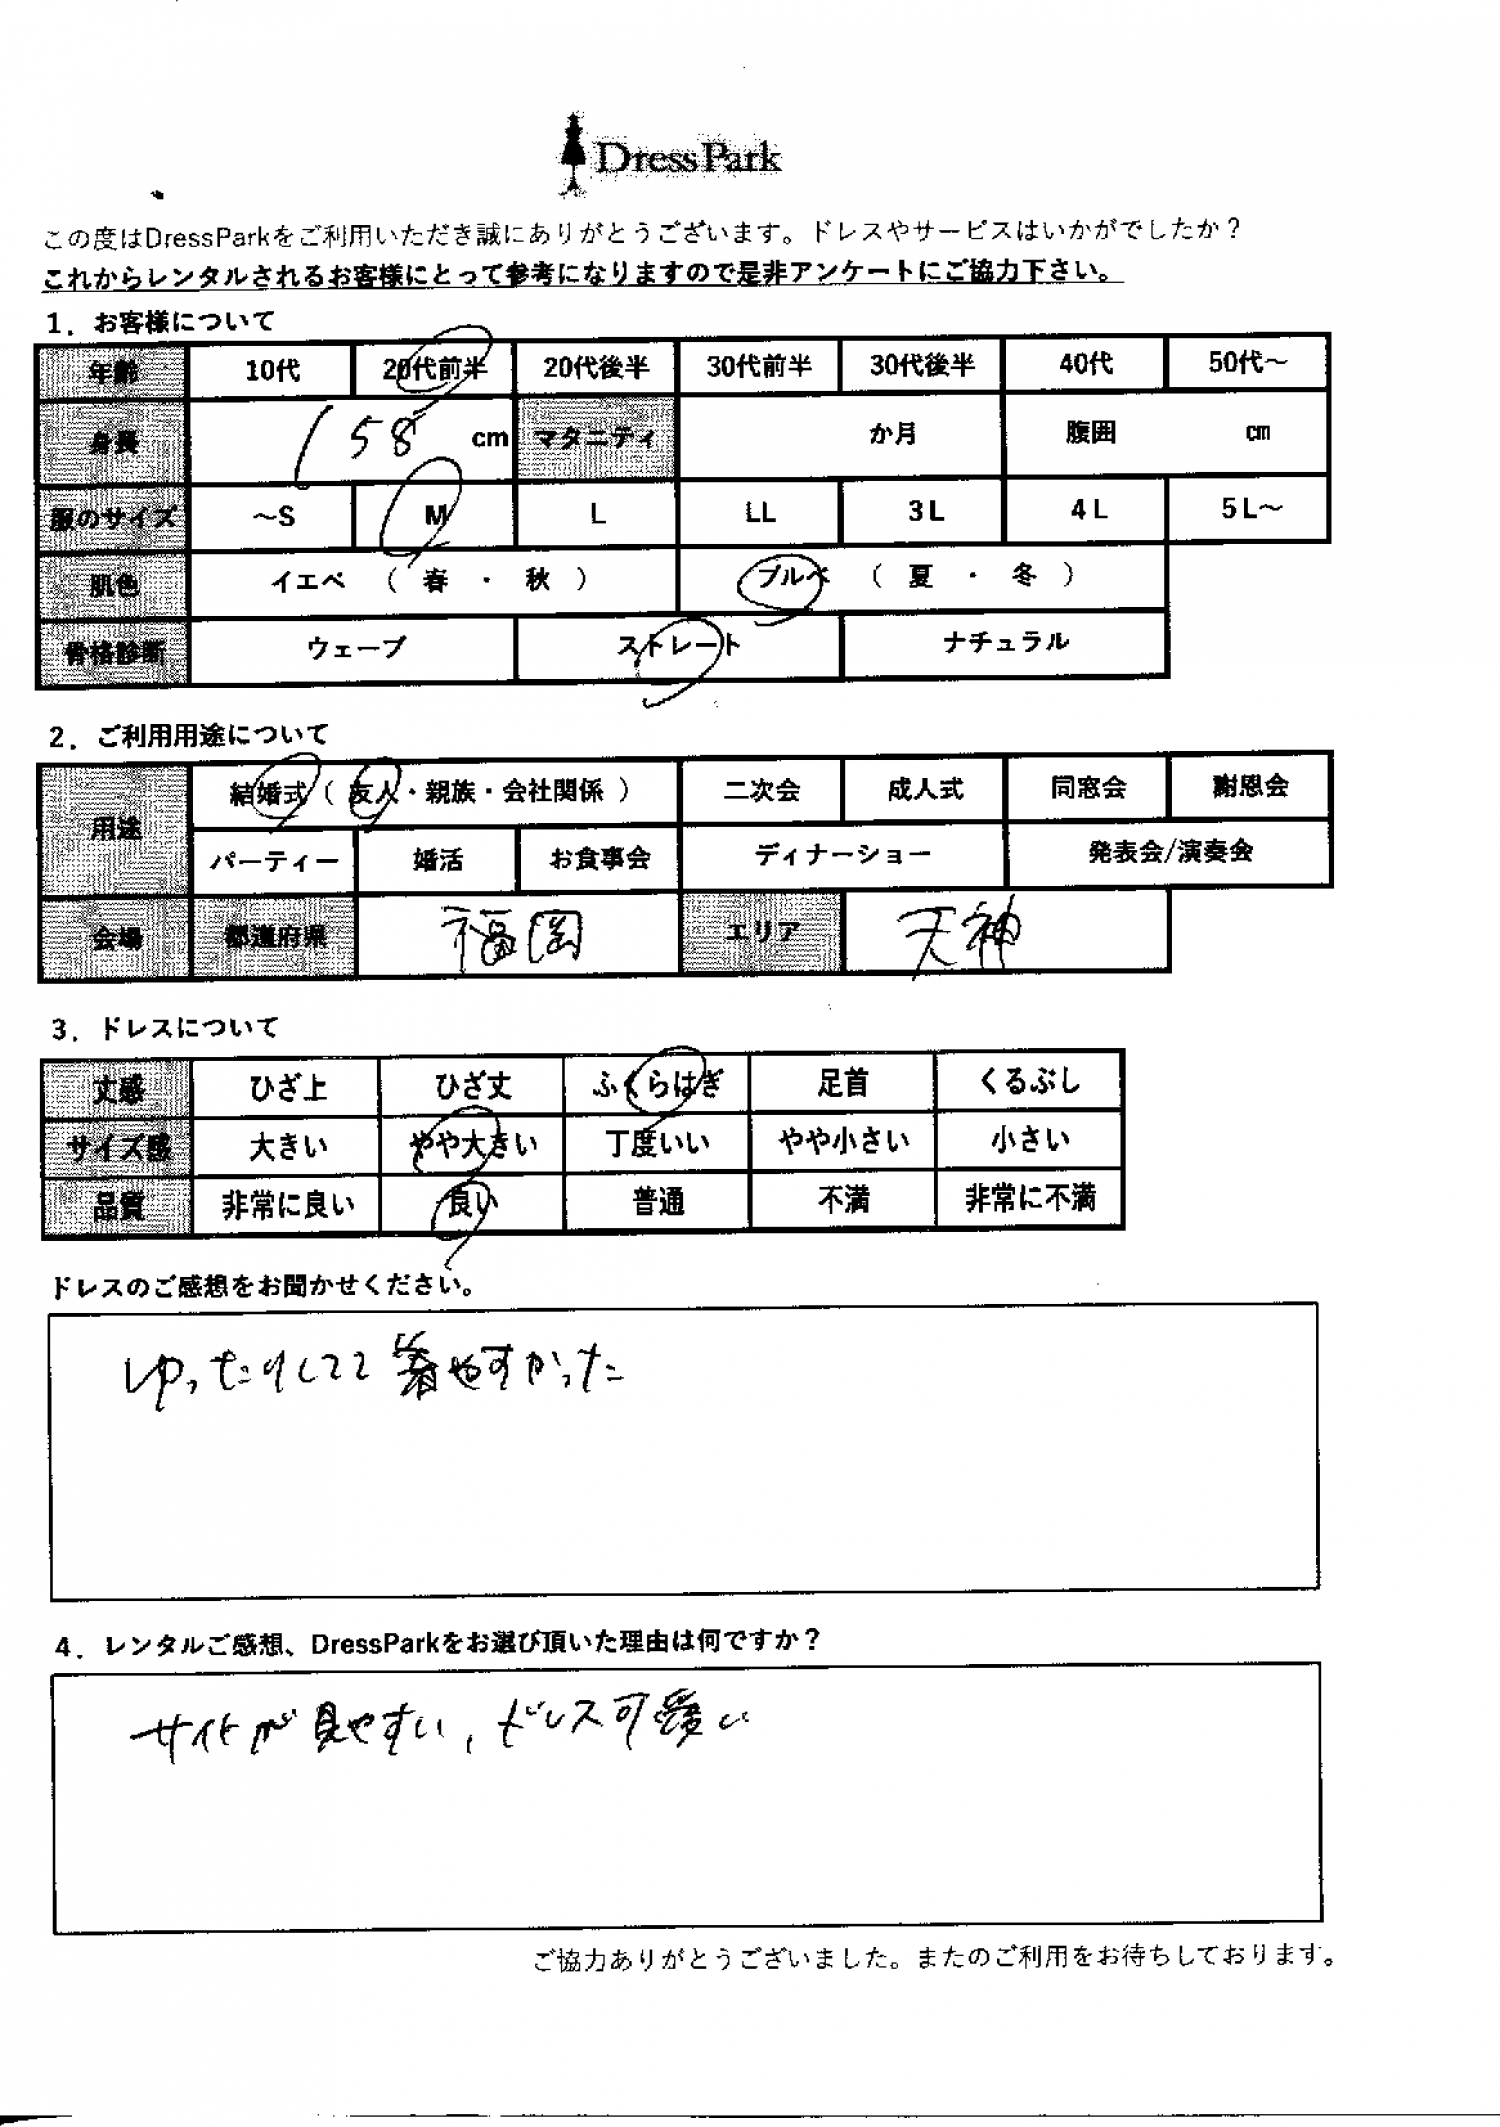 DressPark
この度はDressParkをご利用いただき誠にありがとうございます。ドレスやサービスはいかがでしたか？
これからレンタルされるお客様にとって参考になりますので是非アンケートにご協力下さい。
1．お客様について
年齢 10代 20代前半 20代後半 30代前半 30代後半 40代 50代～
身長 158 cm マタニティ か月 腹囲 cm
服のサイズ ～S M L LL 3L 4L 5L～
肌色 イエベ （ 春 ・ 秋 ） ブルベ （ 夏 ・ 冬 ）
骨格診断 ウェーブ ストレート ナチュラル
2．ご利用用途について
用途 結婚式（ 友人・親族・会社関係 ） 二次会 成人式 同窓会 謝恩会
パーティー 婚活 お食事会 ディナーショー 発表会/演奏会
会場 都道府県 福岡 エリア 天神
3．ドレスについて
丈感 ひざ上 ひざ丈 ふくらはぎ 足首 くるぶし
サイズ感 大きい やや大きい 丁度いい やや小さい 小さい
品質 非常に良い 良い 普通 不満 非常に不満
ドレスのご感想をお聞かせください。
ゆったりしてて着やすかった
4．レンタルご感想、DressParkをお選び頂いた理由は何ですか？
サイトが見やすい，ドレス可愛い
ご協力ありがとうございました。またのご利用をお待ちしております。